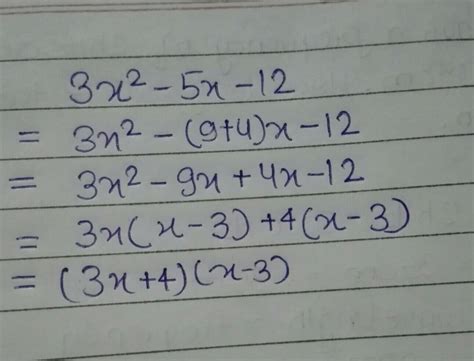 3x² - 5x - 12
= 3x² - (9+4)x - 12
= 3x² - 9x + 4x - 12
= 3x(x - 3) + 4(x - 3)
= (3x+4)(x-3)